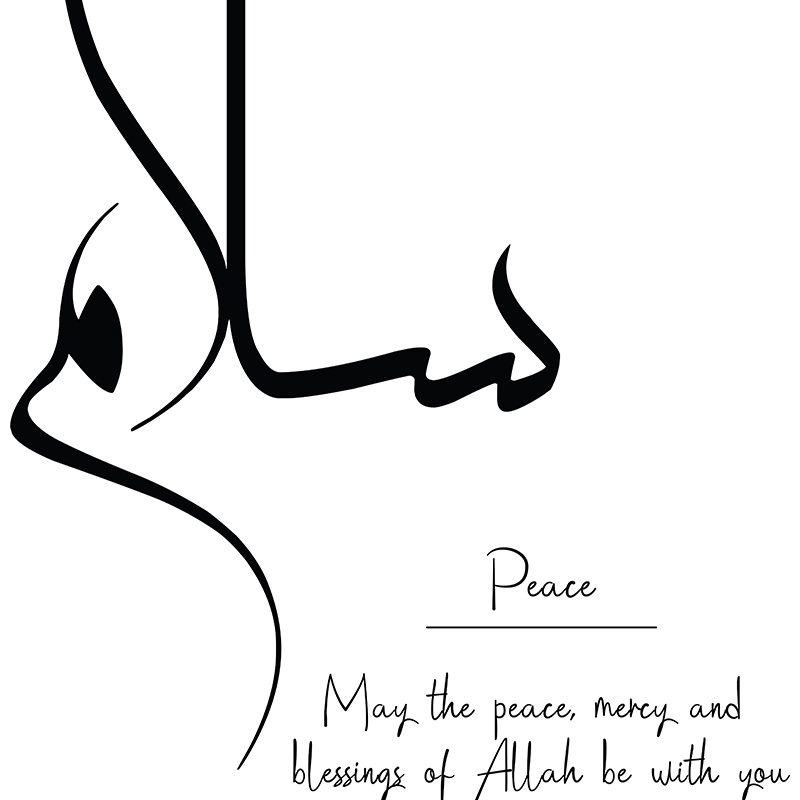 سلام
Peace
May the peace, mercy and
blessings of Allah be with you